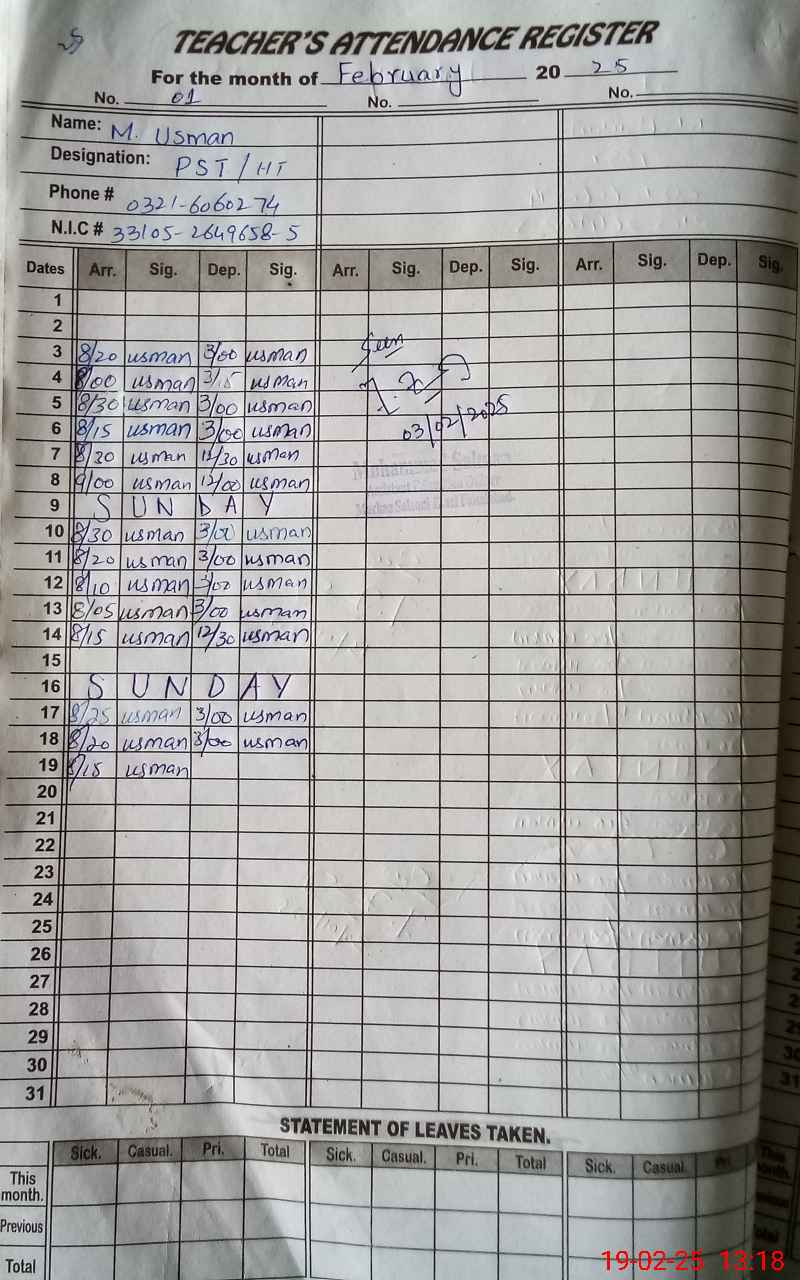 TEACHER'S ATTENDANCE REGISTER
For the month of February 20 25
No. 01 No. No.
Name: M. Usman
Designation: PST/HT
Phone # 0321-6060274
N.I.C # 33105-2649658-5
Dates Arr. Sig. Dep. Sig. Arr. Sig. Dep. Sig. Arr. Sig. Dep. Sig.
1
2
3 8/20 usman 3/00 usman
Seen
4 8/00 usman 3/15 usman
5 8/30 usman 3/00 usman
03/02/2025
6 8/15 usman 3/00 usman
7 8/30 usman 12/30 usman
8 9/00 usman 12/00 usman
9 SUNDAY
10 8/30 usman 3/00 usman
11 8/20 usman 3/00 usman
12 8/10 usman 3/00 usman
13 8/05 usman 3/00 usman
14 8/15 usman 12/30 usman
15
16 SUNDAY
17 8/25 usman 3/00 usman
18 8/20 usman 3/00 usman
19 8/15 usman
20
21
22
23
24
25
26
27
28
29
30
31
STATEMENT OF LEAVES TAKEN.
Sick. Casual. Pri. Total Sick. Casual. Pri. Total Sick. Casual. Pri.
This month.
Previous
Total
19-02-25 13:18